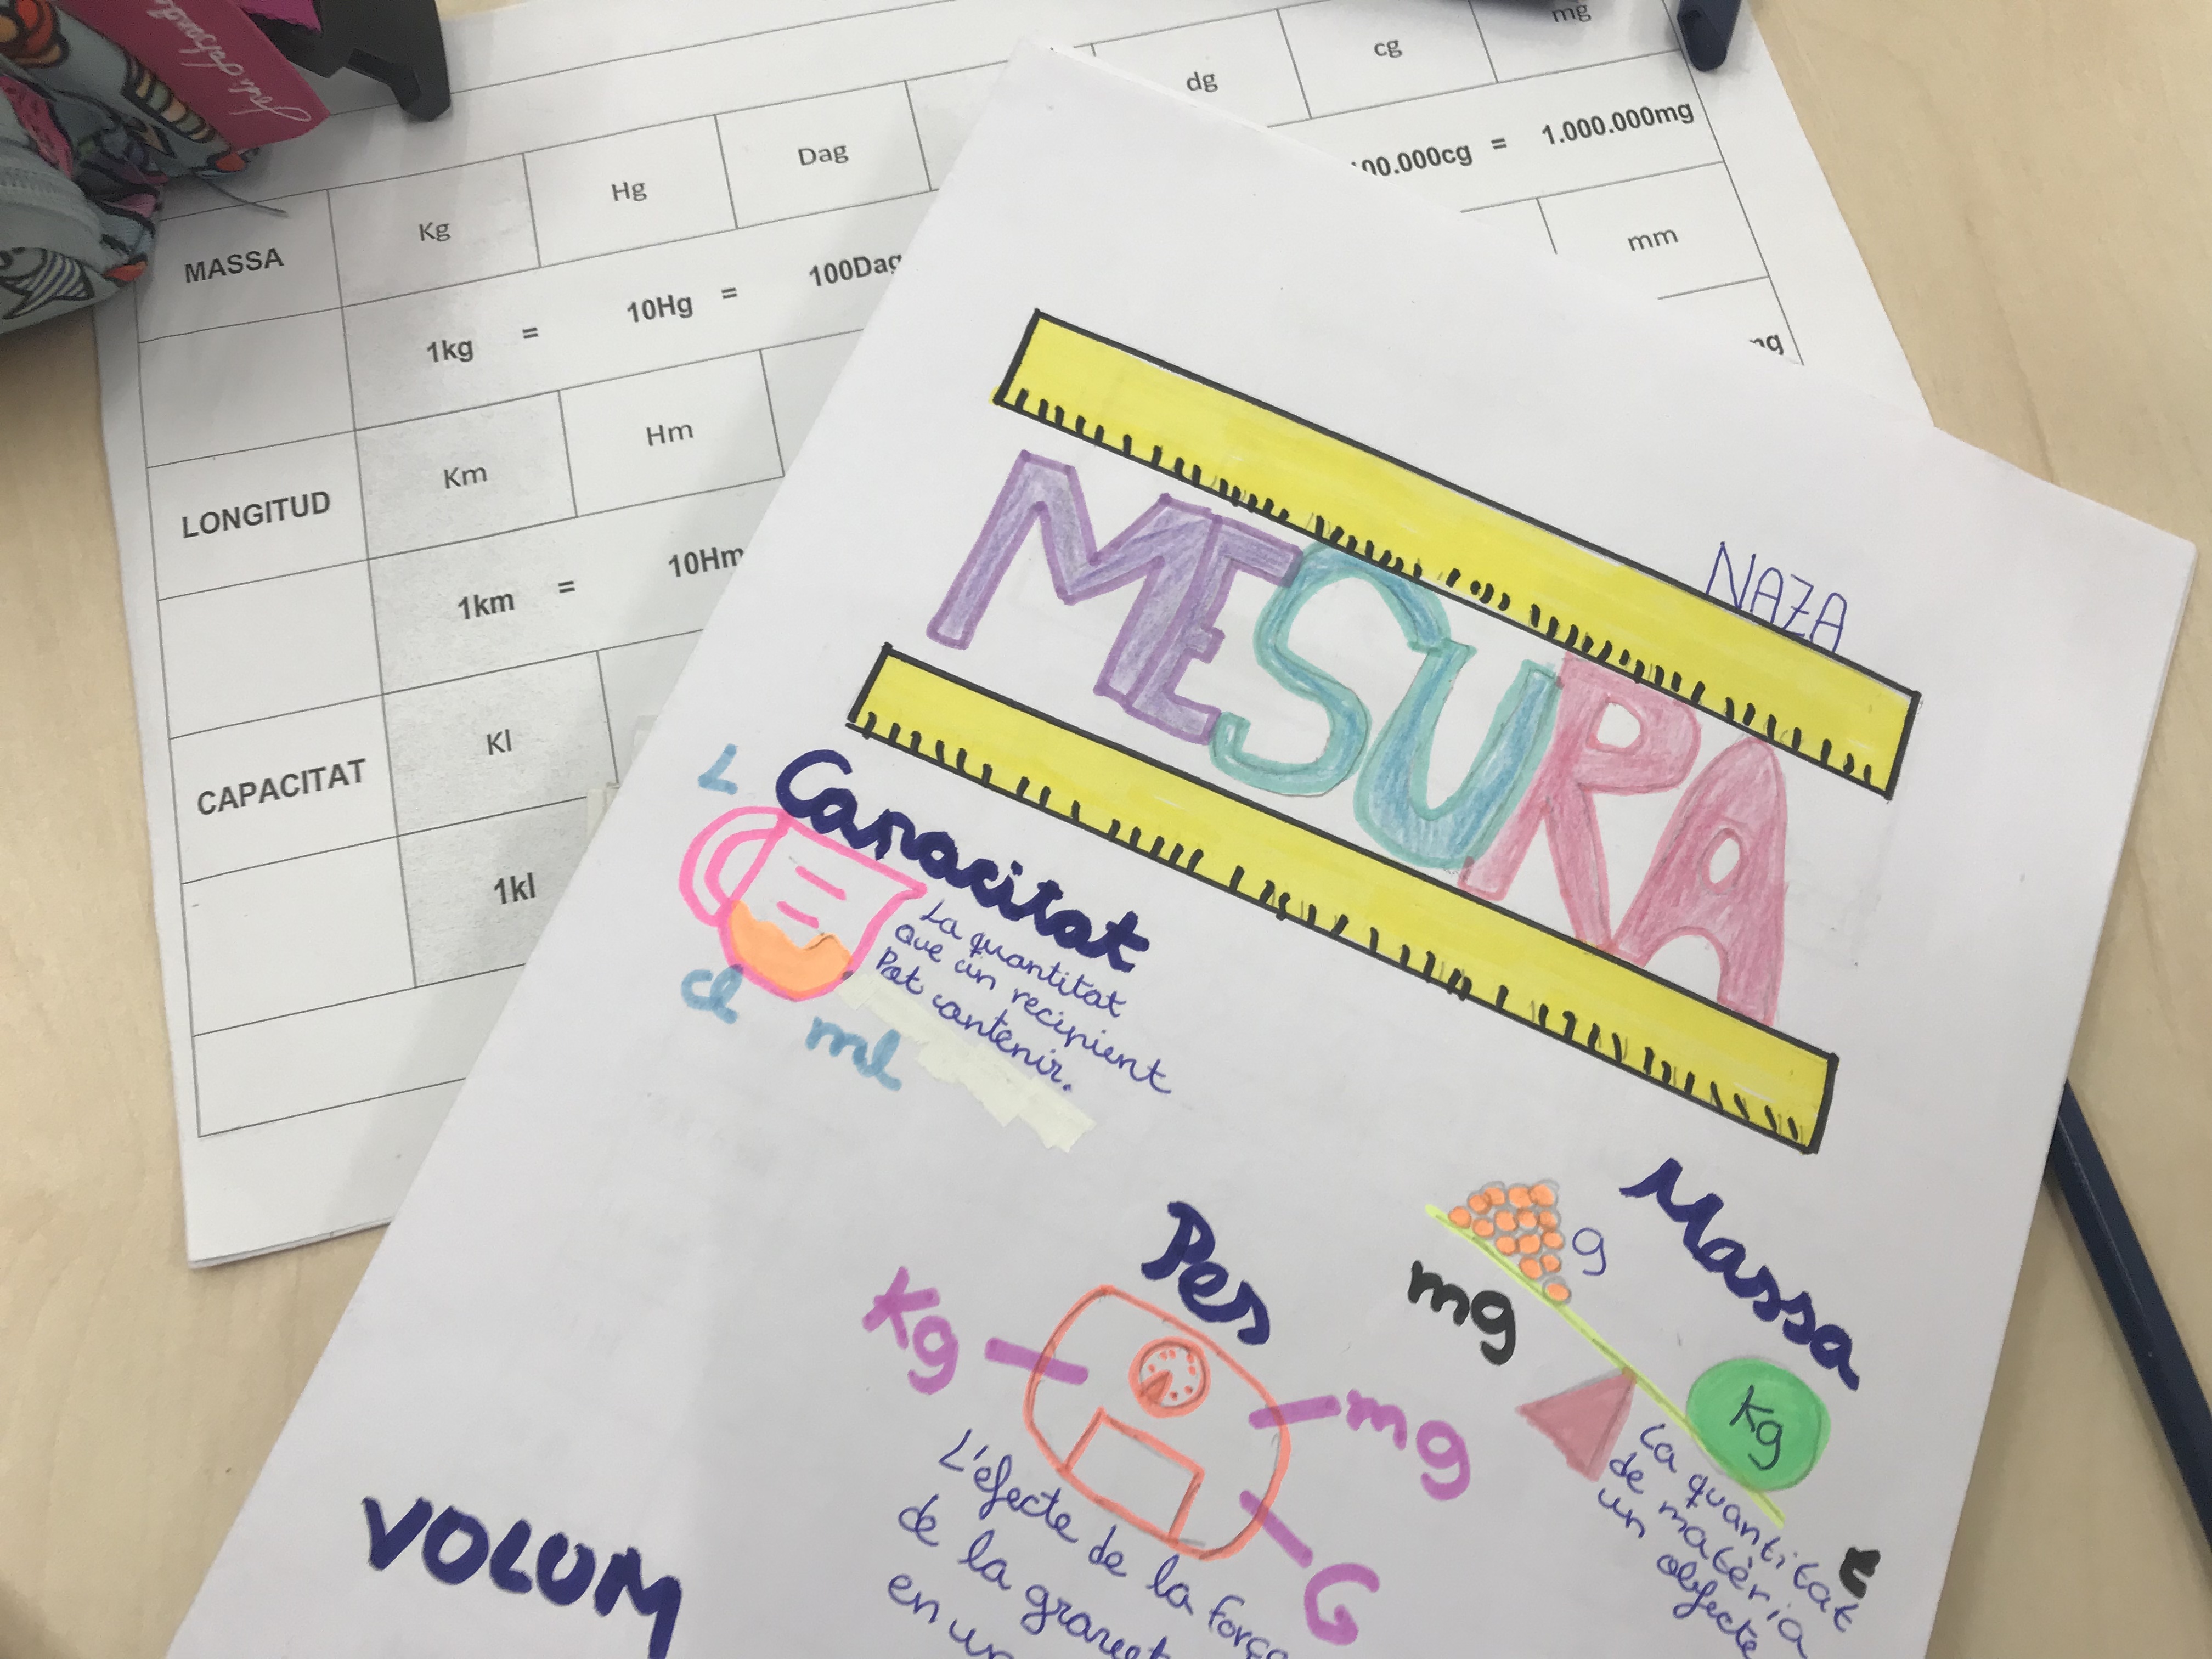 dg
cg
mg
Dag
Hg
Kg
MASSA
00.000cg = 1.000.000mg
1kg = 10Hg = 100Dag
mm
Hm
Km
LONGITUD
1km = 10Hm
Kl
CAPACITAT
1kl
NAZA
MESURA
L
Capacitat
La quantitat
que un recipient
Pot contenir.
cl
ml
Massa
g
mg
Kg
La quantitat
de matèria
un objecte
Pes
Kg
mg
G
L'efecte de la força
de la gravet
en un
VOLUM